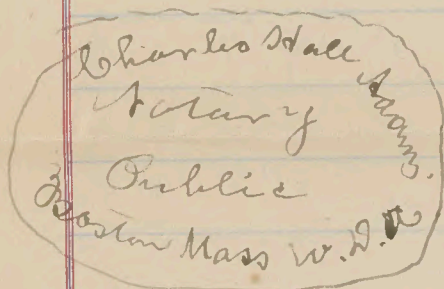 Charles Hall Adams.
Notary
Public
Boston Mass W. D. A